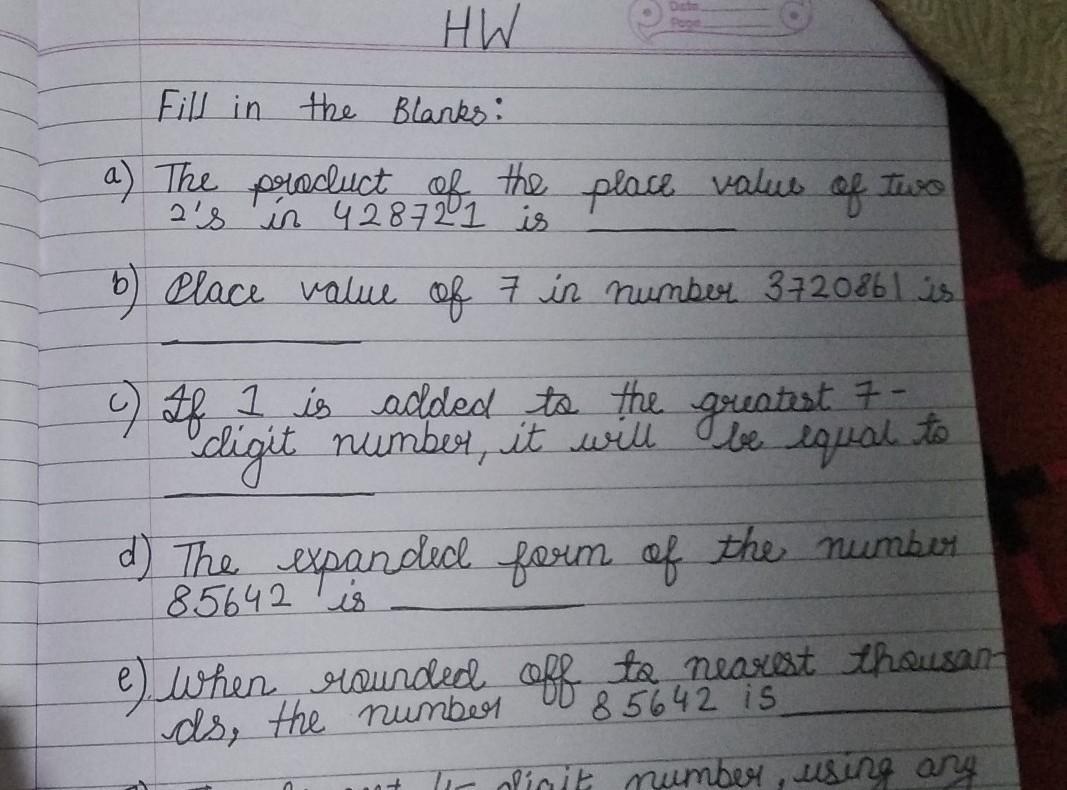 HW
Date
Page
Fill in the Blanks:
a) The product of the place value of two
2's in 428721 is
b) Place value of 7 in number 3720861 is
c) If 1 is added to the greatest 7-
digit number, it will be equal to
d) The expanded form of the number
85642 is
e) When rounded off to nearest thousan-
ds, the number 85642 is
digit number, using any